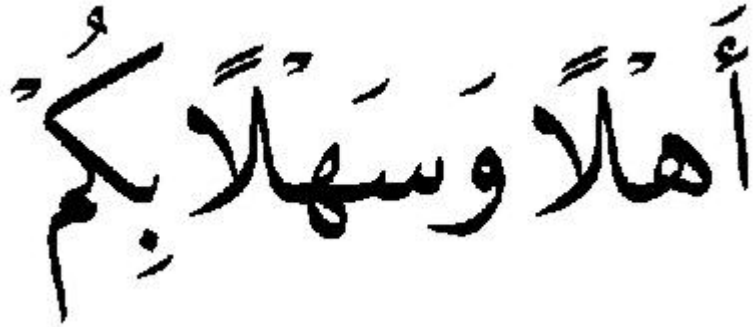 أَهْلًا وَسَهْلًا بِكُمْ